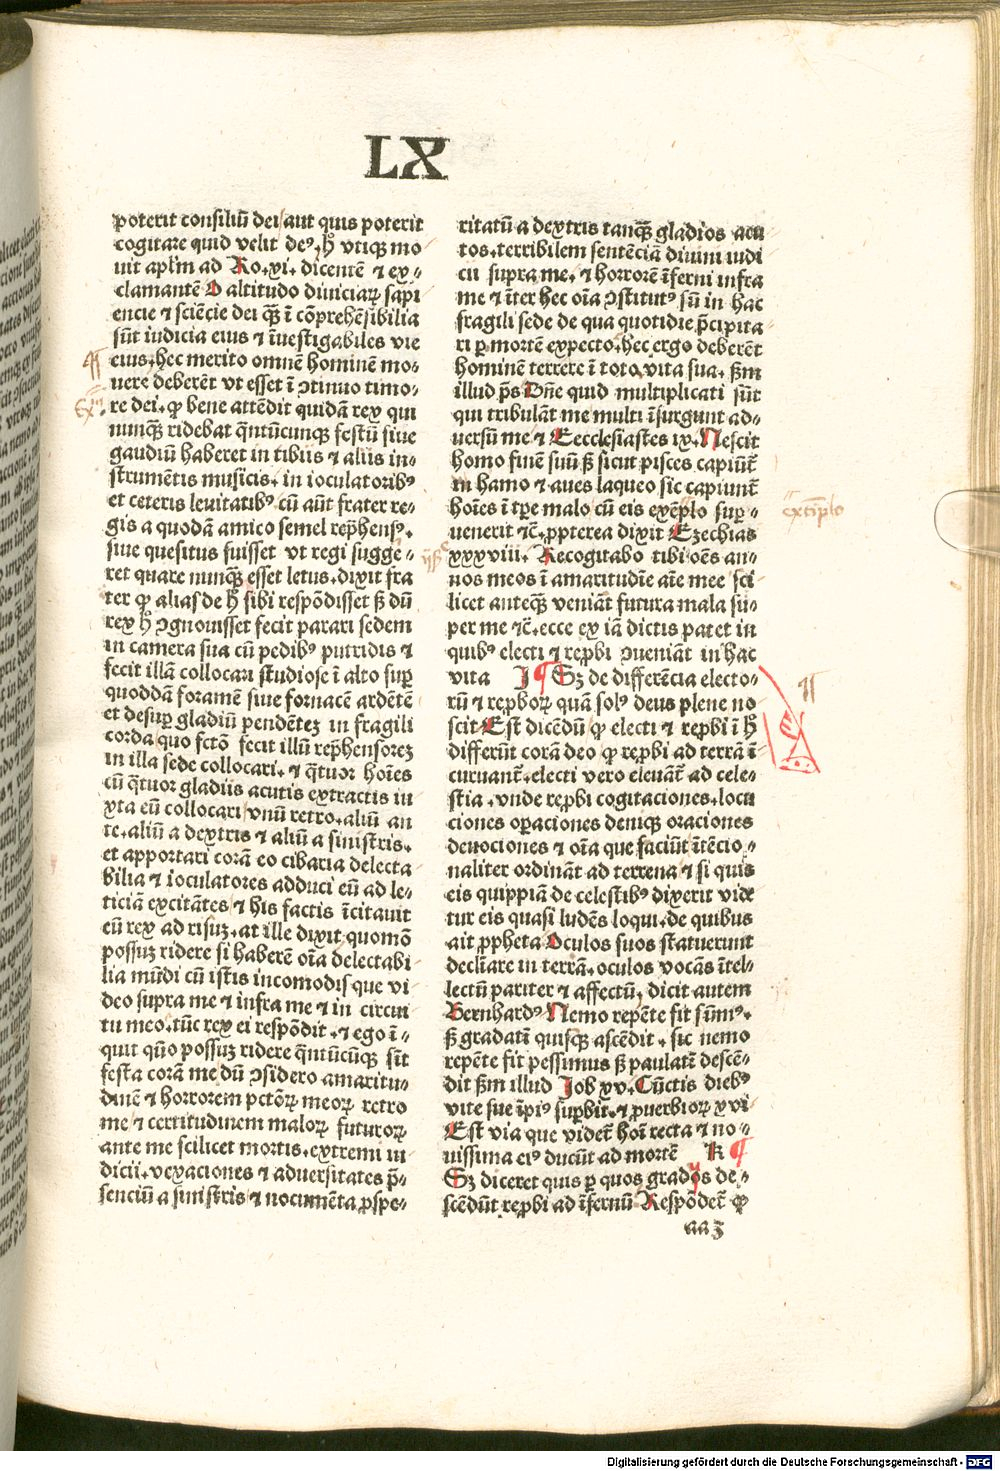 LX
poterit consiliū dei aut quis poterit
cogitare quid velit deꝰ, hͦ vtiqꝫ mo
uit apl̄m ad Ro.xi. dicentē ⁊ ex-
clamantē O altitudo diuiciaꝝ sapi
encie ⁊ sciēcie dei qꝫ̄ ī cōprehēsibilia
sūt iudicia eius ⁊ īuestigabiles vie
eius, hec merito omnē hominē mo-
uere deberēt vt esset ī ↄtinuo timo-
re dei. ꝙ bene attēdit quidā rex qui
nunqꝫ̄ ridebat q̄ntūcunqꝫ festū siue
gaudiū haberet in tibiis ⁊ aliis in-
strumētis musicis. in ioculatoribꝰ
et ceteris leuitatibꝰ cū aūt frater re-
gis a quodā amico semel rep̄hensꝰ.
siue quesitus fuisset vt regi sugge-
ret quare nunqꝫ̄ esset letus. dixit fra
ter ꝙ alias de hͦ sibi respōdisset sꝫ dū
rex hͦ ↄgnouisset fecit parari sedem
in camera sua cū pedibꝰ putridis ⁊
fecit illā collocari studiose ī alto suꝑ
quoddā foramē siue fornacē ardētē
et desuꝑ gladiū pendēteꝫ in fragili
corda quo fctō fecit illū rep̄hensoreꝫ
in illa sede collocari. ⁊ q̄tuor hoīes
cū q̄tuor gladiis acutis extractis iu
xta eū collocari vnū retro. aliū an
te. aliū a dextris ⁊ aliū a sinistris.
et apportari corā eo cibaria delecta
bilia ⁊ ioculatores adduci eū ad le-
ticiā excitātes ⁊ his factis īcitauit
eū rex ad risuꝫ. at ille dixit quomō
possuꝫ ridere si haberē oīa delectabi
lia mūdi cū istis incomodis que vi
deo supra me ⁊ infra me ⁊ in circui
tu meo. tūc rex ei respōdit. ⁊ ego ī-
quit quō possuꝫ ridere q̄ntūcūqꝫ sīt
festa corā me dū ↄsidero amaritu-
dinē ⁊ horrorem pctōꝝ meoꝝ retro
me ⁊ certitudinem maloꝝ futuroꝝ
ante me scilicet mortis. extremi iu
dicii. vexaciones ⁊ aduersitates p̄-
senciū a sinistris ⁊ nocumēta ꝓspe-
ritatū a dextris tanqꝫ̄ gladios acu
tos. terribilem sentēciā diuini iudi
cii supra me. ⁊ horrorē īferni infra
me ⁊ īter hec oīa ↄstitutꝰ sū in hac
fragili sede de qua quotidie p̄cipita-
ri ꝑ mortē expecto. hec ergo deberēt
hominē terrere ī toto vita sua. sꝫm
illud p̄s Dn̄e quid multiplicati sūt
qui tribulāt me multi īsurgunt ad-
uersū me ⁊ Eecclesiastes ix. Nescit
homo finē suū sꝫ sicut pisces capiūt᷑
in hamo ⁊ aues laqueo sic capiunt᷑
hoīes ī tp̄e malo cū eis exēplo suꝑ-
uenerit ⁊c̄. ꝓpterea dixit Ezechias
xxxviii. Recogitabo tibi oēs an-
nos meos ī amaritudīe aīe mee sci-
licet anteqꝫ̄ veniāt futura mala su-
per me ⁊c̄. ecce ex iā dictis patet in
quibꝰ electi ⁊ reꝓbi ↄueniāt in hac
vita J ¶ Sꝫ de differēcia electo-
rū ⁊ reꝓboꝝ quā solꝰ deus plene no
scit Est dicēdū ꝙ electi ⁊ reꝓbi ī hͦ
differūt corā deo ꝙ reꝓbi ad terrā ī-
curuant᷑. electi vero eleuāt᷑ ad cele-
stia. vnde reꝓbi cogitaciones. locu
ciones oꝑaciones deniqꝫ oraciones
deuociones ⁊ oīa que faciūt ītēcio-
naliter ordināt ad terrena ⁊ si quis
eis quippiā de celestibꝰ dixerit vide
tur eis quasi ludēs loqui. de quibus
ait ꝓpheta Oculos suos statuerunt
declīare in terrā. oculos vocās ītel-
lectū pariter ⁊ affectū, dicit autem
Bernhardꝰ Nemo repēte fit sūmꝰ.
sꝫ gradatī quisqꝫ ascēdit. sic nemo
repēte fit pessimus sꝫ paulatī descē-
dit sꝫm illud Job xv. Cūctis diebꝰ
vite sue īpiꝰ suꝑbit. ⁊ ꝓuerbioꝝ xvi
Est via que videt᷑ hoī recta ⁊ no-
uissima eiꝰ ducūt ad mortē K ¶
Sꝫ diceret quis ꝑ quos gradꝰos de-
scēdūt reꝓbi ad īfernū Respōdet᷑ ꝙ
aa 3
extīplo